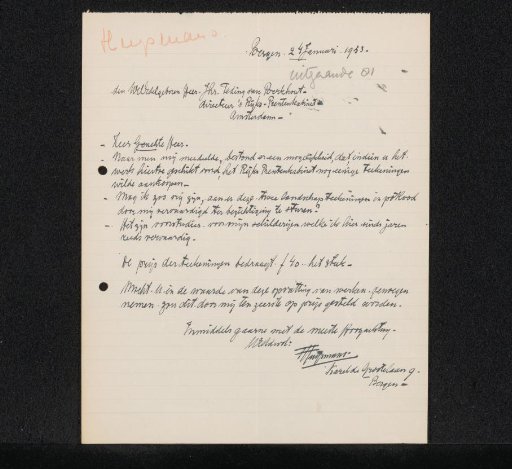 Huysmans.
Bergen. 24 Januari. 1933.
uitgaande 81
den WelEdelgeboren Heer. Jhr. Teding van Berkhout.
Directeur 's Rijks-Prentenkabinet
Amsterdam.
- Zeer Geachte Heer.
- Naar men mij mededeelde, bestond er een mogelijkheid, dat indien U het
werk hiertoe geschikt vond, het Rijks Prentenkabinet mij eenige teekeningen
wilde aankoopen.
- Mag ik zoo vrij zijn, aan U deze twee landschapsteekeningen in potlood
door mij vervaardigd ter bezichtiging te sturen?
- Het zijn voorstudies voor mijn schilderijen welke ik hier sinds jaren
reeds vervaardig.
De prijs der teekeningen bedraagt f 40.- het stuk.
Mocht U in de waarde van deze opvatting van werken. genoegen
nemen. zou dit door mij ten zeerste op prijs gesteld worden.
Inmiddels gaarne met de meeste Hoogachting.
UEd.
Huysmans.
Karel de Grootelaan 9.
Bergen